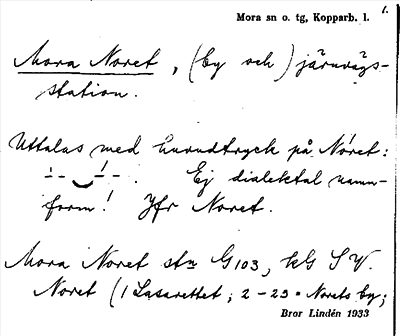 1.
Mora sn o. tg, Kopparb. l.
Mora Noret, (by och) järnvägs-
station.
Uttalas med huvudtryck på Nóret:
Ej dialektal namn-
form! Jfr Noret.
Mora Noret stn G103, kG SV.
Noret (1 Lasarettet; 2-23 = Norets by;
Bror Lindén 1933